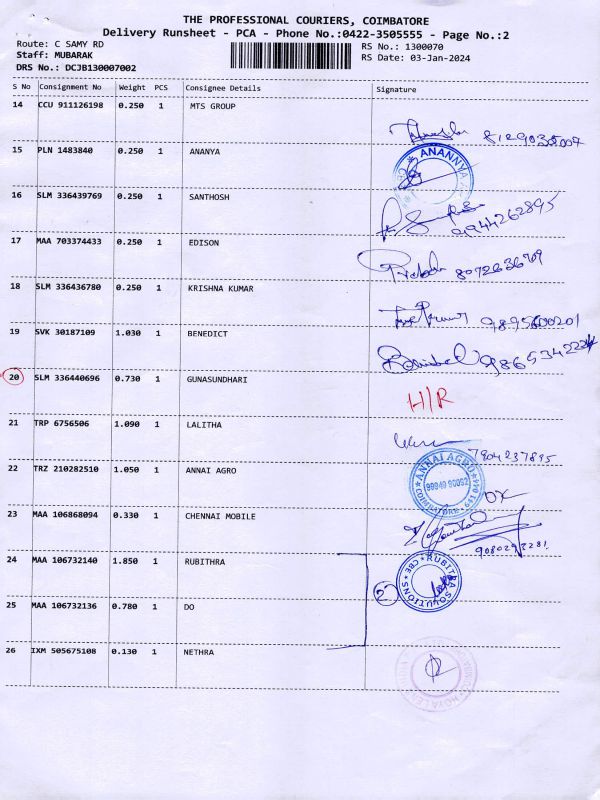 THE PROFESSIONAL COURIERS, COIMBATORE
Delivery Runsheet - PCA - Phone No.:0422-3505555 - Page No.:2
Route: C SAMY RD RS No.: 1300070
Staff: MUBARAK RS Date: 03-Jan-2024
DRS No.: DCJB130007002
S No Consignment No Weight PCS Consignee Details Signature
14 CCU 911126198 0.250 1 MTS GROUP
8129035009
15 PLN 1483840 0.250 1 ANANYA
ANANNYA
16 SLM 336439769 0.250 1 SANTHOSH
9944262895
17 MAA 703374433 0.250 1 EDISON
8072636709
18 SLM 336436780 0.250 1 KRISHNA KUMAR
9895600201
19 SVK 30187109 1.030 1 BENEDICT
20 SLM 336440696 0.730 1 GUNASUNDHARI
H/R
21 TRP 6756506 1.090 1 LALITHA
7904237895
22 TRZ 210282510 1.050 1 ANNAI AGRO
ANNAI AGRO
COIMBATORE
23 MAA 106868094 0.330 1 CHENNAI MOBILE
24 MAA 106732140 1.850 1 RUBITHRA
2
RUBITRA SOLUTIONS CBE
25 MAA 106732136 0.780 1 DO
26 IXM 505675108 0.130 1 NETHRA